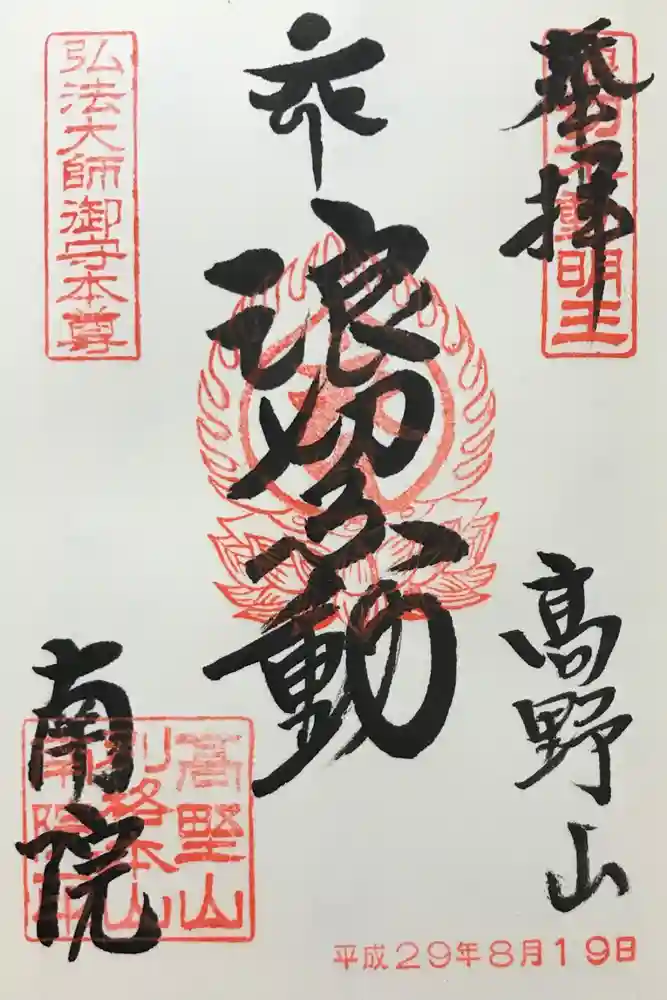 奉拝
浪切不動明王
高野山
浪切不動
弘法大師御守本尊
南院
高野山
別格本山
南院印
平成29年8月19日